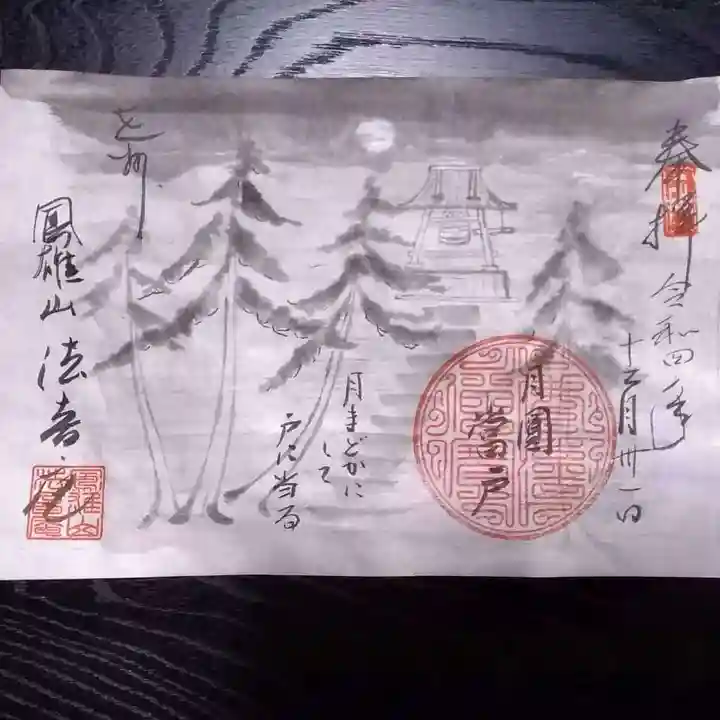 奉拝
令和四年
十二月卅一日
月圓
當戸
月まどかに
して
戸に当る
鳳雄山 法音寺